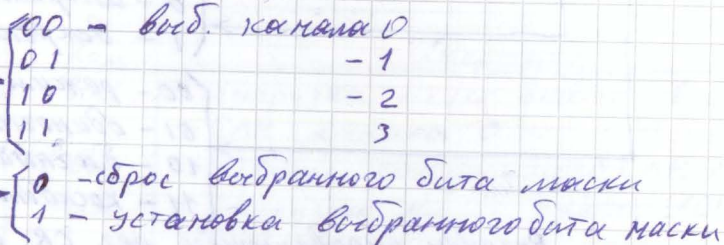 00 - выб. канала 0
01 - 1
10 - 2
11 3
0 - сброс выбранного бита маски
1 - установка выбранного бита маски